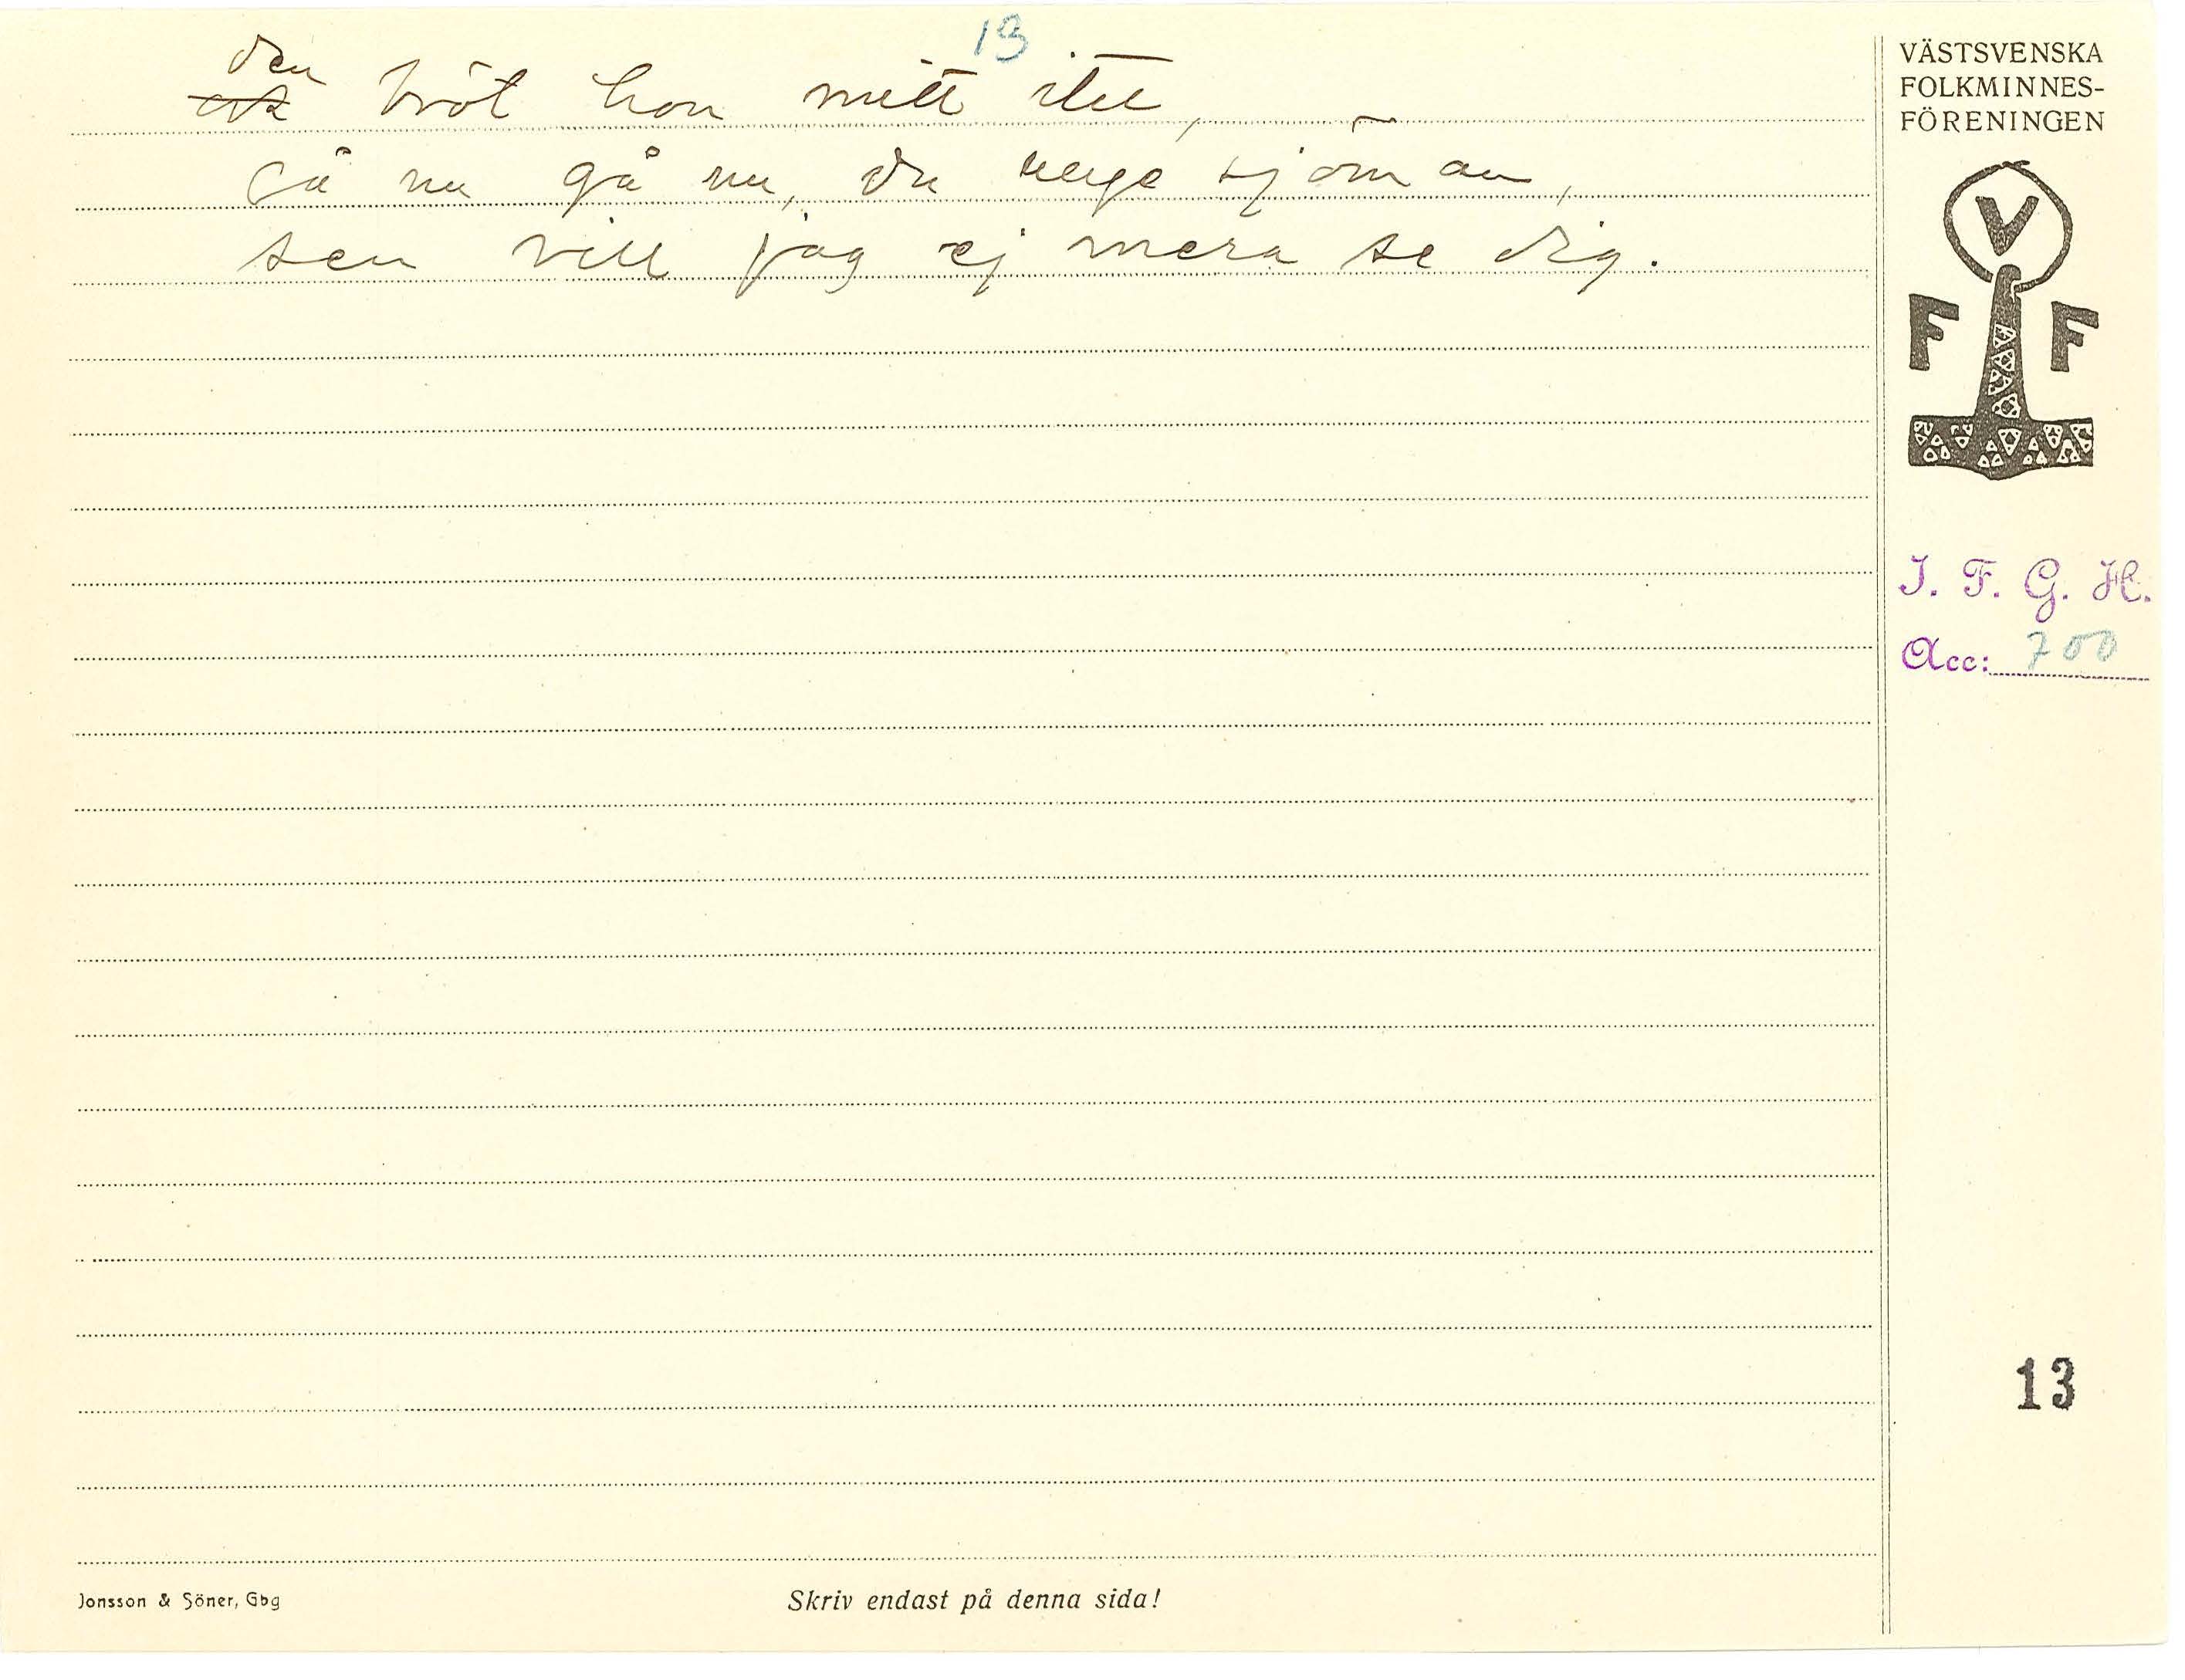 13
den
bröt hon mitt itu,
Gå nu gå nu, du unge sjöman,
sen vill jag ej mera se dig.
VÄSTSVENSKA
FOLKMINNES-
FÖRENINGEN
V
F F
I. F. G. H.
Acc: 700
13
Jonsson & Söner, Gbg
Skriv endast på denna sida!